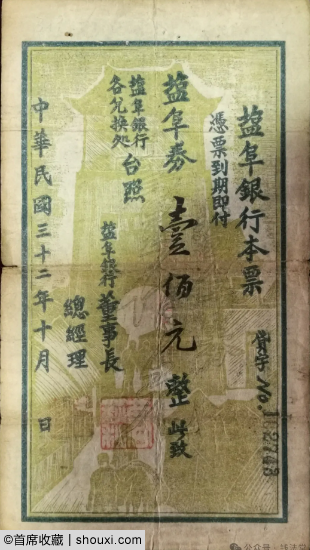 塩阜銀行本票
憑票到期即付
貸字 No.102743
塩阜券壹佰元整此致
塩阜銀行
各兌換処台照
塩阜銀行董事長
總經理
中華民國三十二年十月　日
@首席收藏 | shouxi.com
公众号